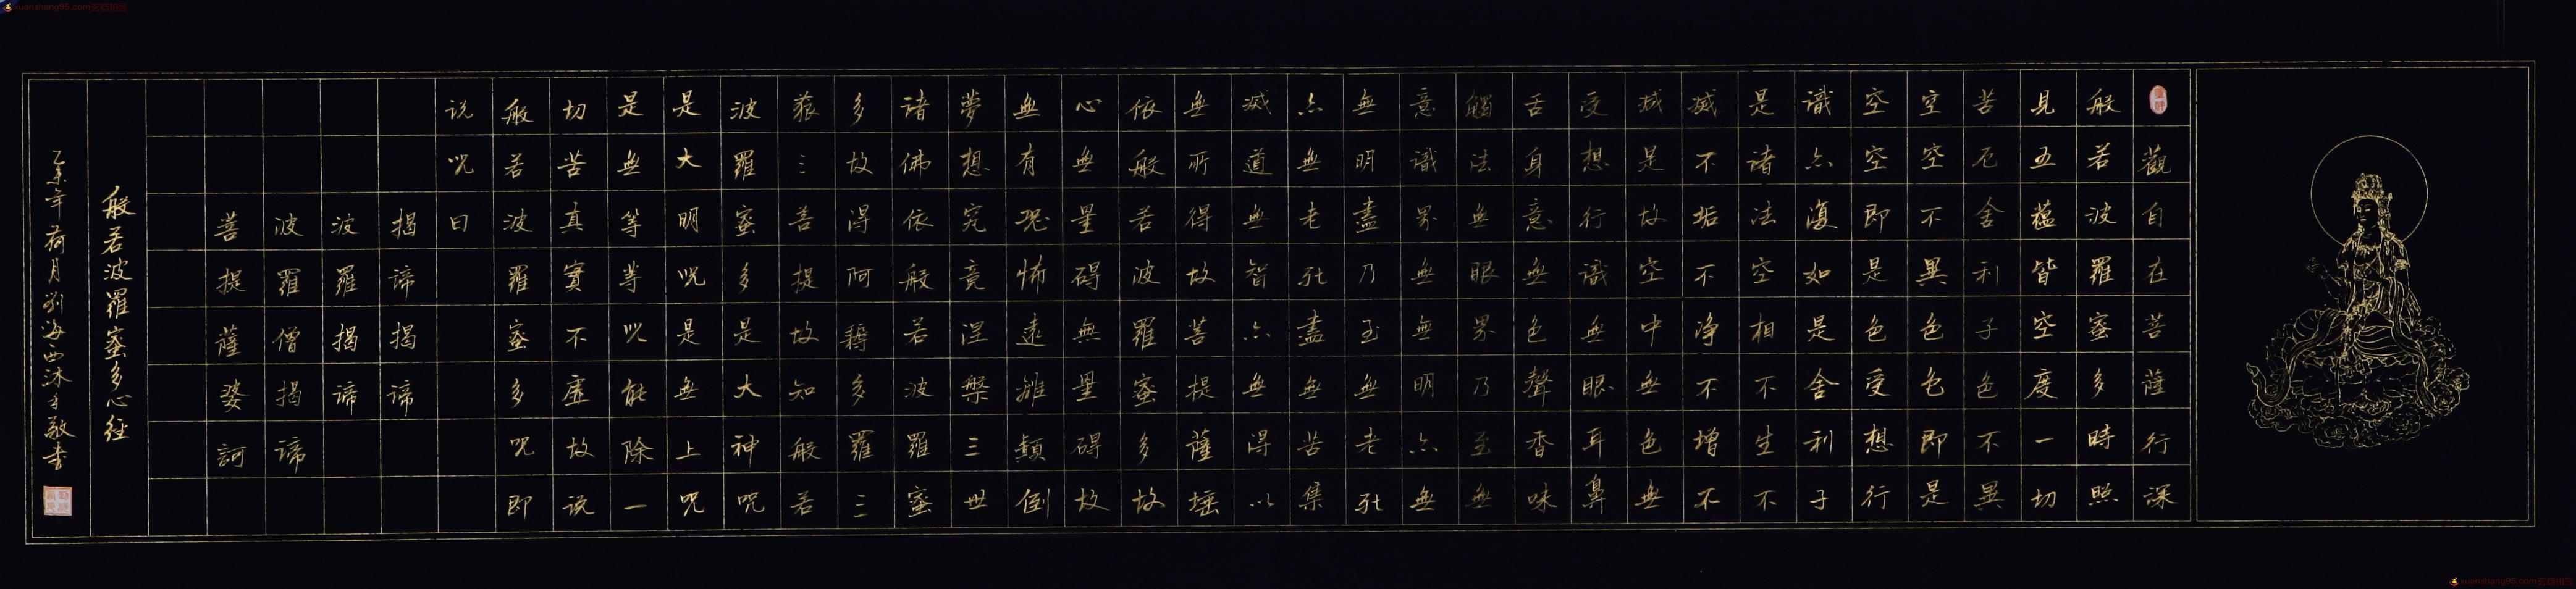 觀自在菩薩行深
般若波羅蜜多時照
見五蘊皆空度一切
苦厄舍利子色不異
空空不異色色即是
空空即是色受想行
識亦復如是舍利子
是諸法空相不生不
滅不垢不淨不增不
減是故空中無色無
受想行識無眼耳鼻
舌身意無色聲香味
觸法無眼界乃至無
意識界無無明亦無
無明盡乃至無老死
亦無老死盡無苦集
滅道無智亦無得以
無所得故菩提薩埵
依般若波羅蜜多故
心無罣碍無罣碍故
無有恐怖遠離顛倒
夢想究竟涅槃三世
諸佛依般若波羅蜜
多故得阿耨多羅三
藐三菩提故知般若
波羅蜜多是大神咒
是大明咒是無上咒
是無等等咒能除一
切苦真實不虛故説
般若波羅蜜多咒即
说咒曰
揭諦揭諦
波羅揭諦
波羅僧揭諦
菩提薩婆訶
般若波羅蜜多心经
乙未年荷月劉海西沐手敬書
xuanshang95.com
xuanshang95.com